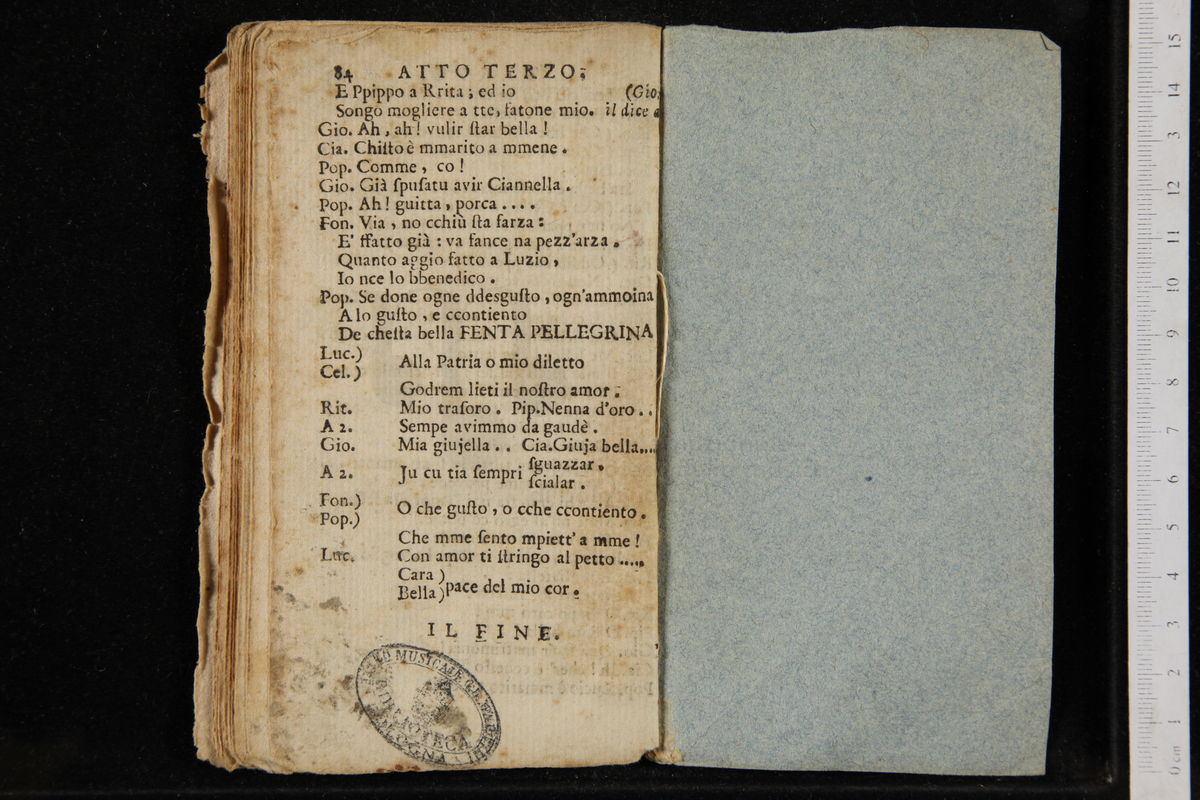 84 ATTO TERZO;
E Ppippo a Rrita; ed io (Gio.
Songo mogliere a tte, fatone mio. il dice a
Gio. Ah, ah! vulir ſtar bella!
Cia. Chiſto è mmarito a mmene.
Pop. Comme, co!
Gio. Già ſpuſatu avir Ciannella.
Pop. Ah! guitta, porca....
Fon. Via, no cchiù ſta farza:
E' ffatto già: va fance na pezz'arza.
Quanto aggio fatto a Luzio,
Io nce lo bbenedico.
Pop. Se done ogne ddesguſto, ogn'ammoina
A lo guſto, e ccontiento
De cheſta bella FENTA PELLEGRINA
Luc.)
Cel.) Alla Patria o mio diletto
Godrem lieti il noſtro amor.
Rit. Mio traſoro. Pip.Nenna d'oro..
A 2. Sempe avimmo da gaudè.
Gio. Mia giujella.. Cia.Giuja bella....
A 2. Ju cu tia ſempri ſguazzar.
ſcialar.
Fon.)
Pop.) O che guſto, o cche ccontiento.
Che mme ſento mpiett' a mme!
Luc. Con amor ti ſtringo al petto.....
Cara)
Bella) pace del mio cor.
IL FINE.
MUSICALE G.B. MARTINI
BOLOGNA
BIBLIOTECA
0 cm 1 2 3 4 5 6 7 8 9 10 11 12 13 14 15